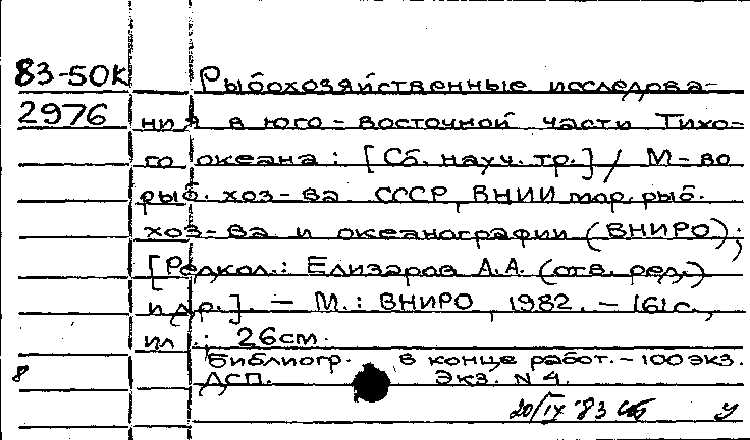 83-50К Рыбохозяйственные исследова-
2976 ния в юго-восточной части Тихо-
го океана: [Сб. науч. тр.] / М-во
рыб. хоз-ва СССР, ВНИИ мор. рыб.
хоз-ва и океанографии (ВНИРО);
[Редкол.: Елизаров А.А. (отв. ред.)
и др.]. – М.: ВНИРО, 1982. – 161 с.,
ил.; 26 см.
Библиогр. в конце работ. – 100 экз.
8 ДСП. Экз. N 4.
20/IX '83